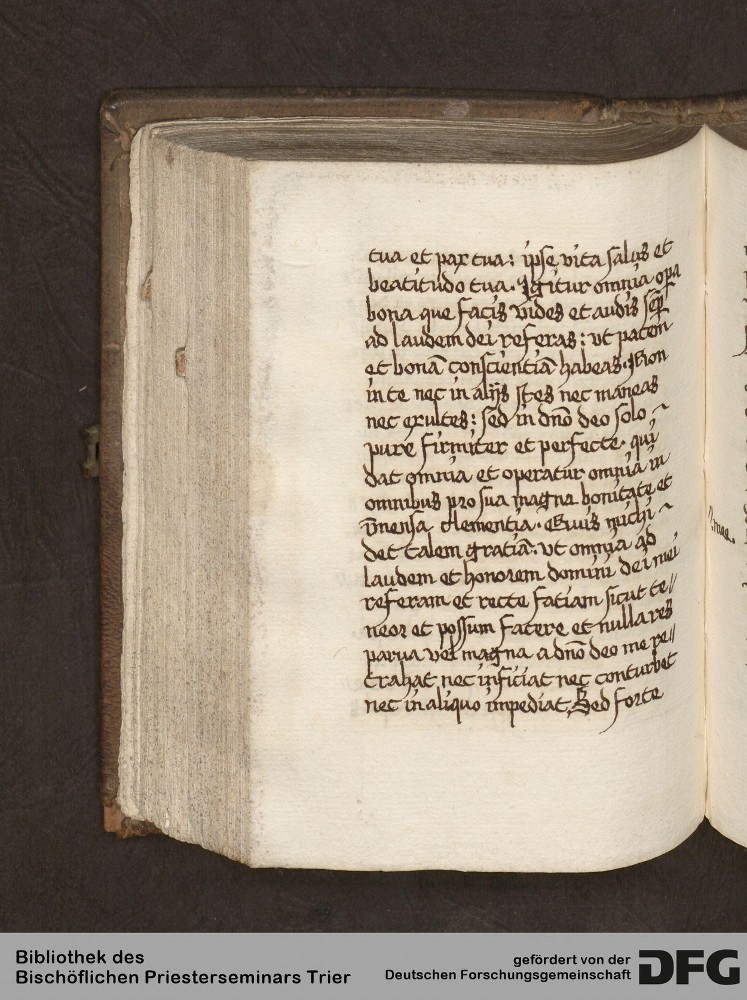 tua et pax tua: ipse vita salus et
beatitudo tua. Igitur omnia opa
bona que facis vides et audis sep
ad laudem dei referas: ut pacem
et bonā conscientiā habeas. Non
in te nec in alijs stes nec maneas
nec exultes: sed in dn̄o deo solo
pure firmiter et perfecte. qui
dat omnia et operatur omnia in
omnibus pro sua magna bonitate et
īmensa clementia. Quis michi
det talem gratiā. ut omnia ad
laudem et honorem domini dei mei
referam et recte faciam sicut te//
neor et possum facere et nulla res
parua vel magna a dn̄o deo me re//
trahat nec inficiat nec conturbet
nec in aliquo impediat. Sed forte
Bibliothek des
Bischöflichen Priesterseminars Trier
gefördert von der
Deutschen Forschungsgemeinschaft
DFG